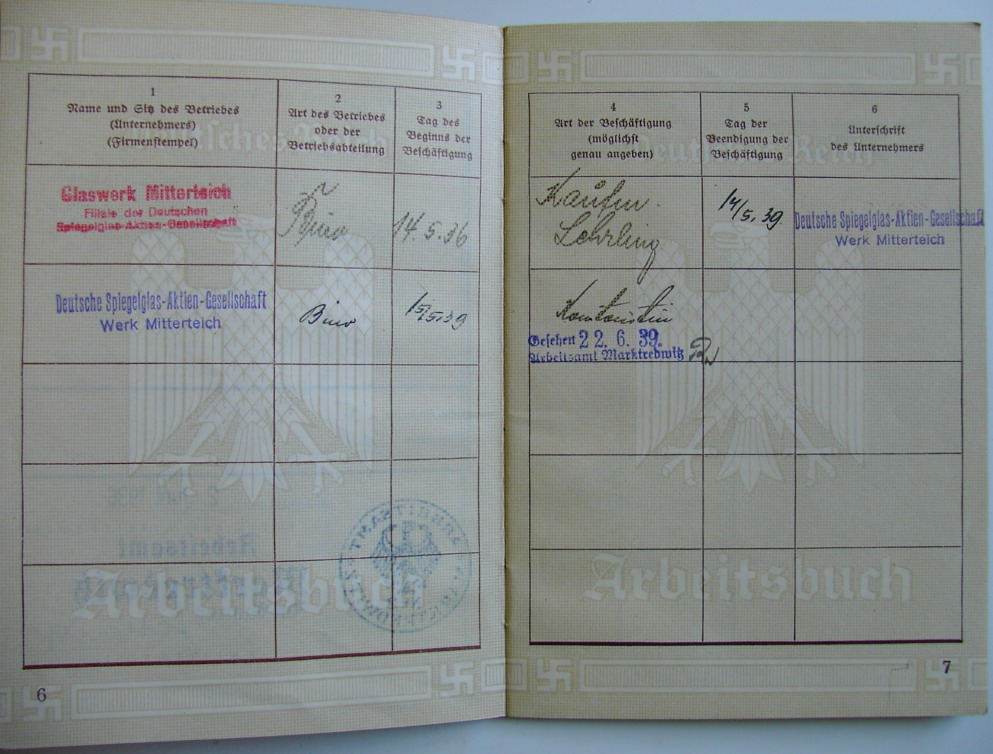 1
Name und Sitz des Betriebes
(Unternehmers)
(Firmenstempel)
2
Art des Betriebes
oder der
Betriebsabteilung
3
Tag des
Beginns der
Beschäftigung
Glaswerk Mitterteich
Filiale der Deutschen
Spiegelglas-Aktien-Gesellschaft
Büro
14.5.36
Deutsche Spiegelglas-Aktien-Gesellschaft
Werk Mitterteich
Büro
15/5.39
Arbeitsbuch
6
4
Art der Beschäftigung
(möglichst
genau angeben)
5
Tag der
Beendigung der
Beschäftigung
6
Unterschrift
des Unternehmers
Kaufm.
Lehrling
14/5.39
Deutsche Spiegelglas-Aktien-Gesellschaft
Werk Mitterteich
Kontoristin
Gesehen 22. 6. 39.
Arbeitsamt Marktredwitz
Deutsches Reich
Arbeitsbuch
7